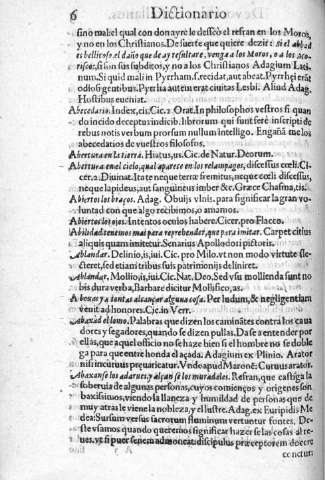 6 Diccionario
sino mal el qual con donayre le desseò el refran en los Moros,
y no en los Christianos. De suerte que quiere dezir: Si el abbad
es bellicoso, el daño que de ay resultare, venga a los Moros, o a los
si son sus subditos, y no a los Christianos Adagium Lati-
num. Si quid mali in Pyrrham. s. recidat, aut abeat. Pyrrhę i erāt
odiosi gentibus. Pyrrha autem erat ciuitas Lesbi. Aliud Adag.
Hostibus eueniat.
Abecedario. Index, tis. Cic. 2 Orat. In philosophos vestros si quan
do incido deceptus indicib. librorum qui sunt ferè inscripti de
rebus notis verbum prorsum nullum intelligo. Engañā me los
abecedarios de vuestros filosofos.
Abertura en la tierra. Hiatus, us. Cic. de Natur. Deorum.
Abertura en el cielo, qual aparece en los relampagos, discessus cœli. Ci-
cer. 2 Diuinat. Itaque neque terræ fremitus, neque cœli discessus,
neque lapideus, aut sanguineus imber &c. Græce Chasma, tis.
Abiertos los braços. Adag. Obuijs vlnis. para significar la gran vo-
luntad con que algo recibimos, o amamos.
Abiertos los ojos. Intentos oculos habere. Cicer. pro Flacco.
Abilidad tenemos mas para reprehender, que para imitar. Carpet citius
aliquis quam imitetur. Senarius Apollodori pictoris.
Ablandar. Delinio, is, iui. Cic. pro Milo. vt non modo virtute fle-
cteret, sed etiam tribus suis patrimonijs deliniret.
Ablandar. Mollio, is, iui. Cic. Nat. Deo. Sed vsu mollienda sunt no
bis dura verba, Barbare dicitur Mollifico, as.
A bouas y a tontas alcançar alguna cosa. Per ludum, & negligentiam
venit ad honores. Cic. in Verr.
Abaxad el lomo. Palabras que dizen los caminātes contra los caua
dores y segadores, quando se dizen pullas. Dase a entender por
ellas, que aquel officio no se haze bien si el hombre no se doble
ga para que entre honda el açada. Adagium ex Plinio. Arator
nisi incuruus prę uaricatur. Vnde apud Marone: Curuus arator.
Abaxanse los adarues, y alçanse los muradales. Refran, que castiga la
soberuia de algunas personas, cuyos comienços y origenes son
baxissimos, viendo la llaneza y humildad de personas que de
muy atras le viene la nobleza, y el lustre. Adag. ex Euripidis Me
dea: Sursum versus sacrorum fluminum vertuntur fontes. De
ste vsamos quando queremos significar hazerse las cosas al re-
ues. vt si puer senem admoneat, discipulus præceptorem docere
conetur: